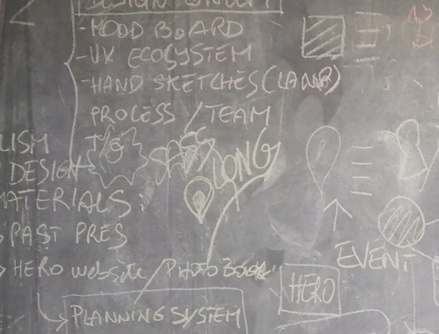 DESIGN CONCEPT
-MOOD BOARD
-UX ECOSYSTEM
-HAND SKETCHES
PROCESS / TEAM
LISM
DESIGN
MATERIALS
PAST PRES
LONG
HERO website / PHOTO
EVENT
HERO
PLANNING SYSTEM